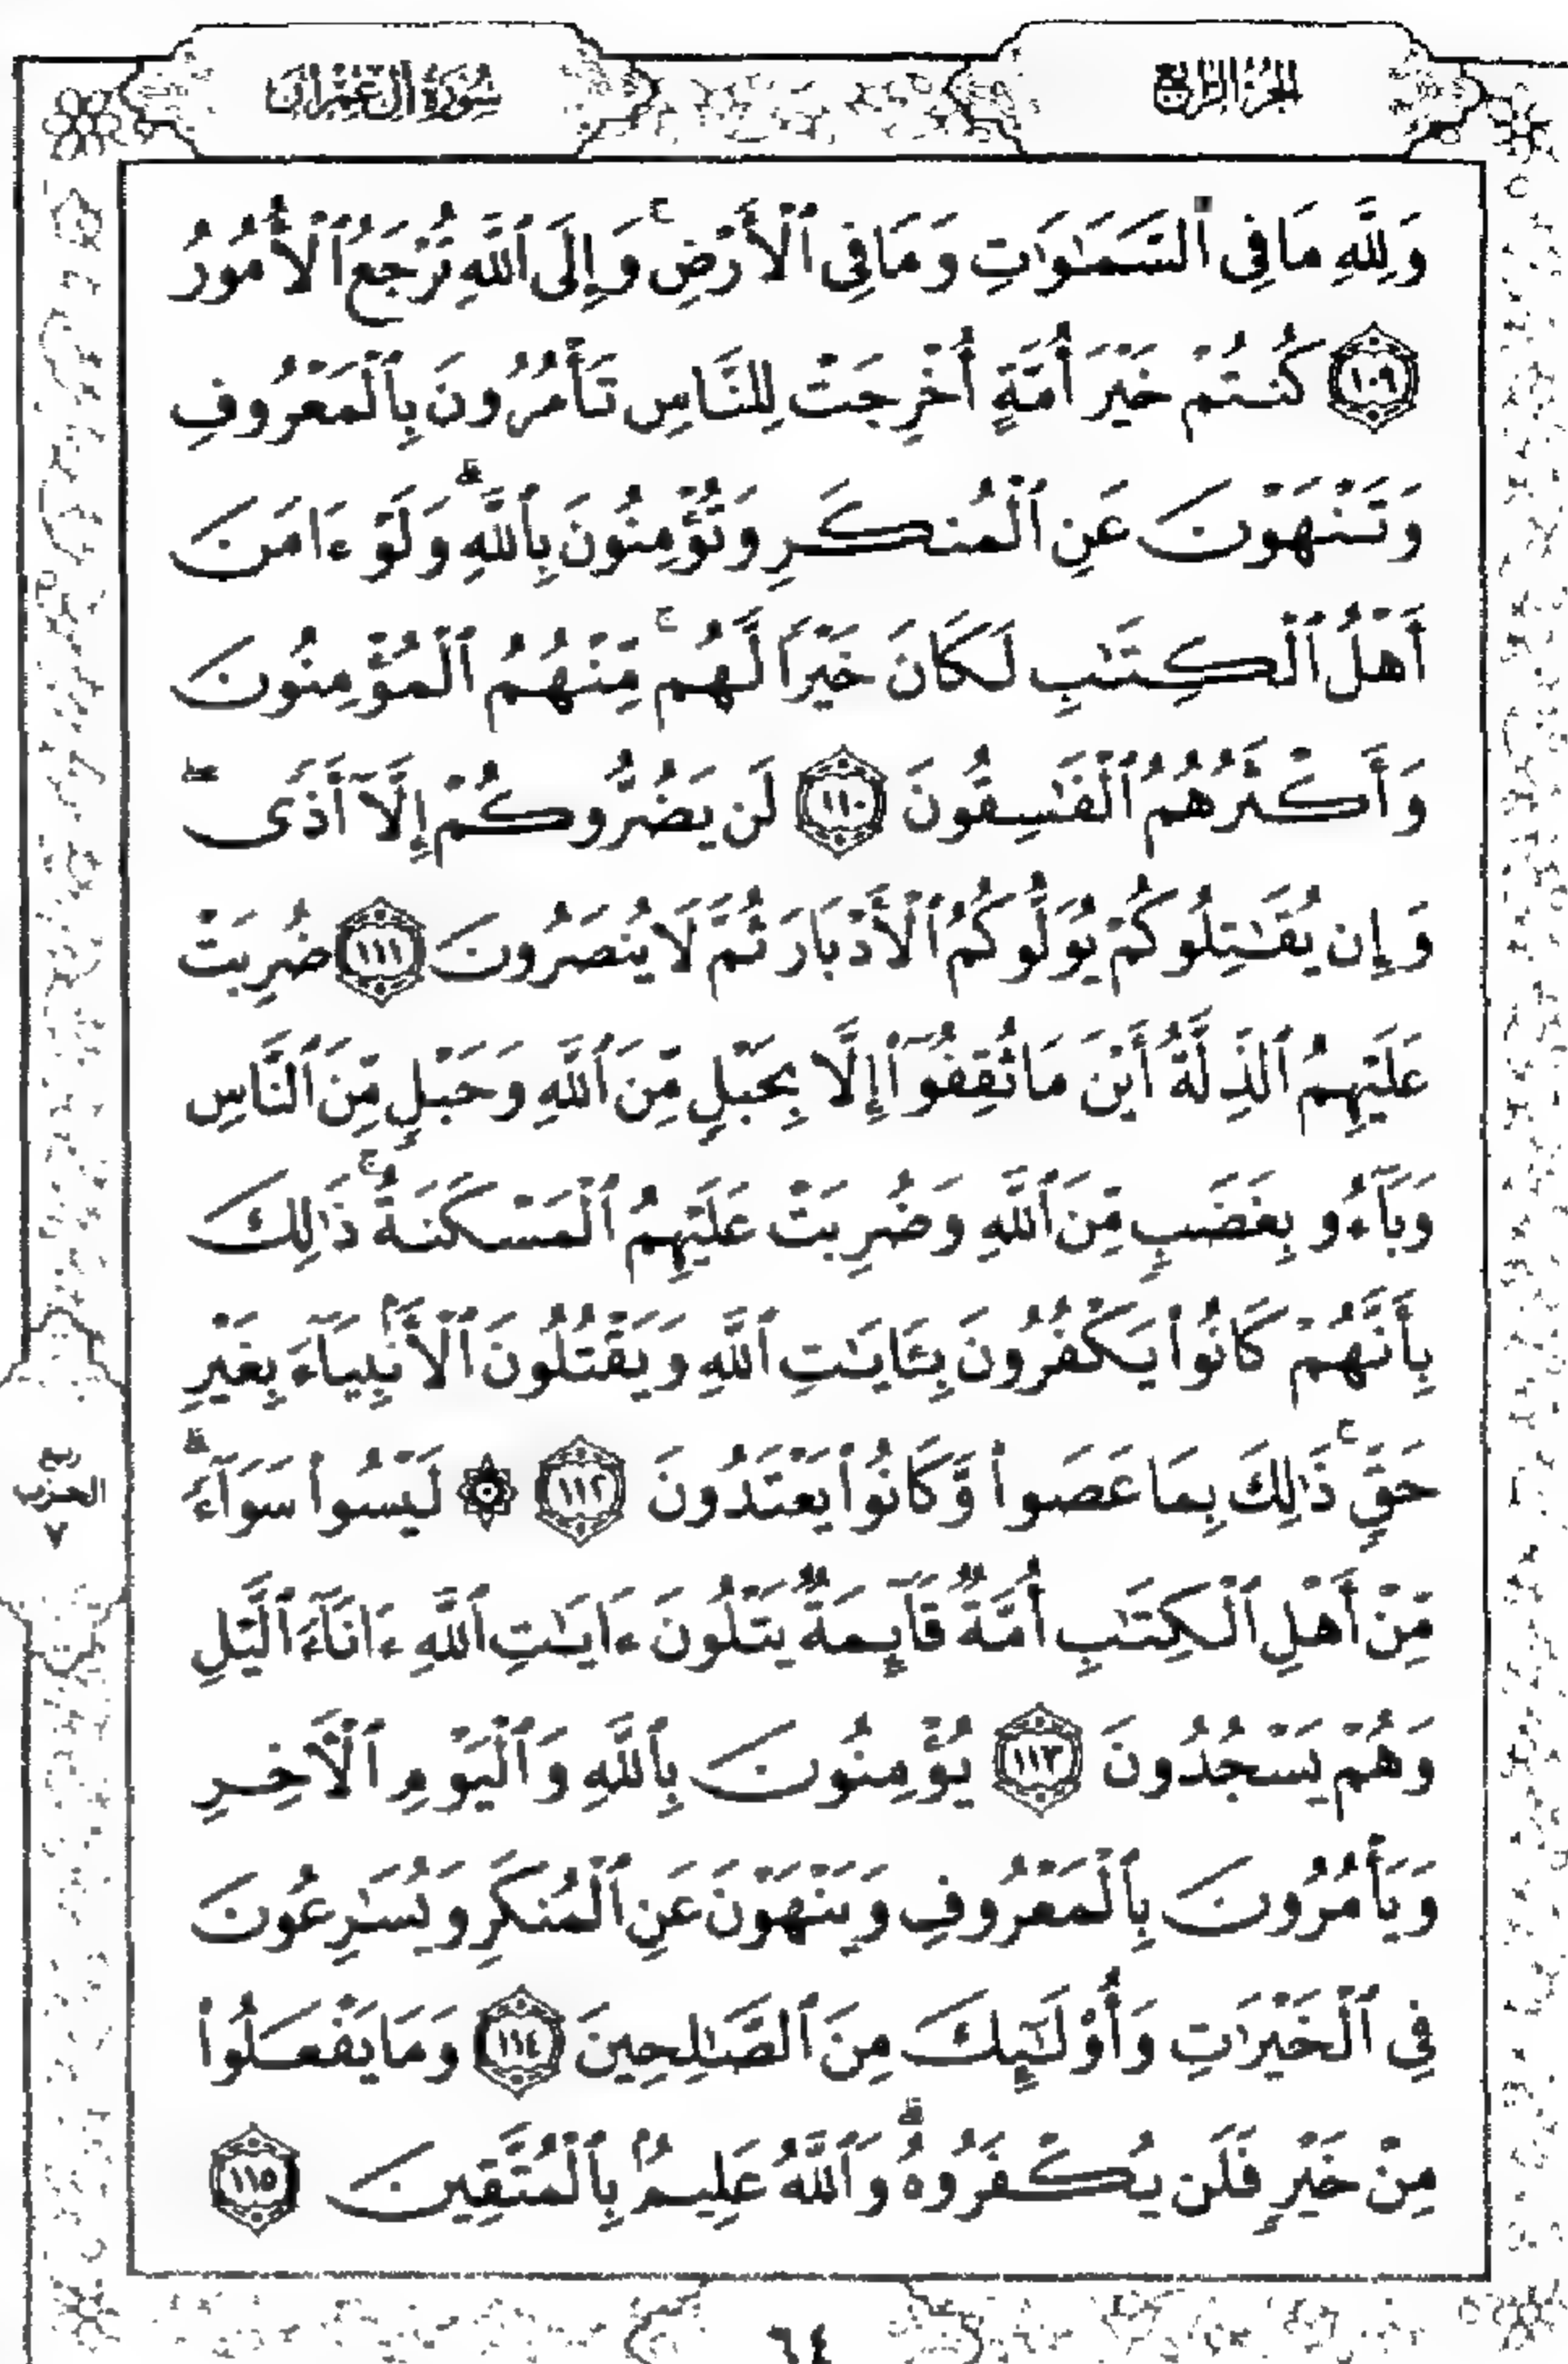 الجزء الرابع
سورة آل عمران
وَلِلَّهِ مَا فِى ٱلسَّمَٰوَٰتِ وَمَا فِى ٱلْأَرْضِ ۚ وَإِلَى ٱللَّهِ تُرْجَعُ ٱلْأُمُورُ
١٠٩ كُنتُمْ خَيْرَ أُمَّةٍ أُخْرِجَتْ لِلنَّاسِ تَأْمُرُونَ بِٱلْمَعْرُوفِ
وَتَنْهَوْنَ عَنِ ٱلْمُنكَرِ وَتُؤْمِنُونَ بِٱللَّهِ ۗ وَلَوْ ءَامَنَ
أَهْلُ ٱلْكِتَٰبِ لَكَانَ خَيْرًا لَّهُم ۚ مِّنْهُمُ ٱلْمُؤْمِنُونَ
وَأَكْثَرُهُمُ ٱلْفَٰسِقُونَ ١١٠ لَن يَضُرُّوكُمْ إِلَّآ أَذًى ۖ
وَإِن يُقَٰتِلُوكُمْ يُوَلُّوكُمُ ٱلْأَدْبَارَ ثُمَّ لَا يُنصَرُونَ ١١١ ضُرِبَتْ
عَلَيْهِمُ ٱلذِّلَّةُ أَيْنَ مَا ثُقِفُوٓا۟ إِلَّا بِحَبْلٍ مِّنَ ٱللَّهِ وَحَبْلٍ مِّنَ ٱلنَّاسِ
وَبَآءُو بِغَضَبٍ مِّنَ ٱللَّهِ وَضُرِبَتْ عَلَيْهِمُ ٱلْمَسْكَنَةُ ۚ ذَٰلِكَ
بِأَنَّهُمْ كَانُوا۟ يَكْفُرُونَ بِـَٔايَٰتِ ٱللَّهِ وَيَقْتُلُونَ ٱلْأَنۢبِيَآءَ بِغَيْرِ
حَقٍّ ۚ ذَٰلِكَ بِمَا عَصَوا۟ وَّكَانُوا۟ يَعْتَدُونَ ١١٢ ۞ لَيْسُوا۟ سَوَآءً ۗ
مِّنْ أَهْلِ ٱلْكِتَٰبِ أُمَّةٌ قَآئِمَةٌ يَتْلُونَ ءَايَٰتِ ٱللَّهِ ءَانَآءَ ٱلَّيْلِ
وَهُمْ يَسْجُدُونَ ١١٣ يُؤْمِنُونَ بِٱللَّهِ وَٱلْيَوْمِ ٱلْءَاخِرِ
وَيَأْمُرُونَ بِٱلْمَعْرُوفِ وَيَنْهَوْنَ عَنِ ٱلْمُنكَرِ وَيُسَٰرِعُونَ
فِى ٱلْخَيْرَٰتِ وَأُو۟لَٰٓئِكَ مِنَ ٱلصَّٰلِحِينَ ١١٤ وَمَا يَفْعَلُوا۟
مِنْ خَيْرٍ فَلَن يُكْفَرُوهُ ۗ وَٱللَّهُ عَلِيمٌۢ بِٱلْمُتَّقِينَ ١١٥
ربع
الحزب
٧
٦٤